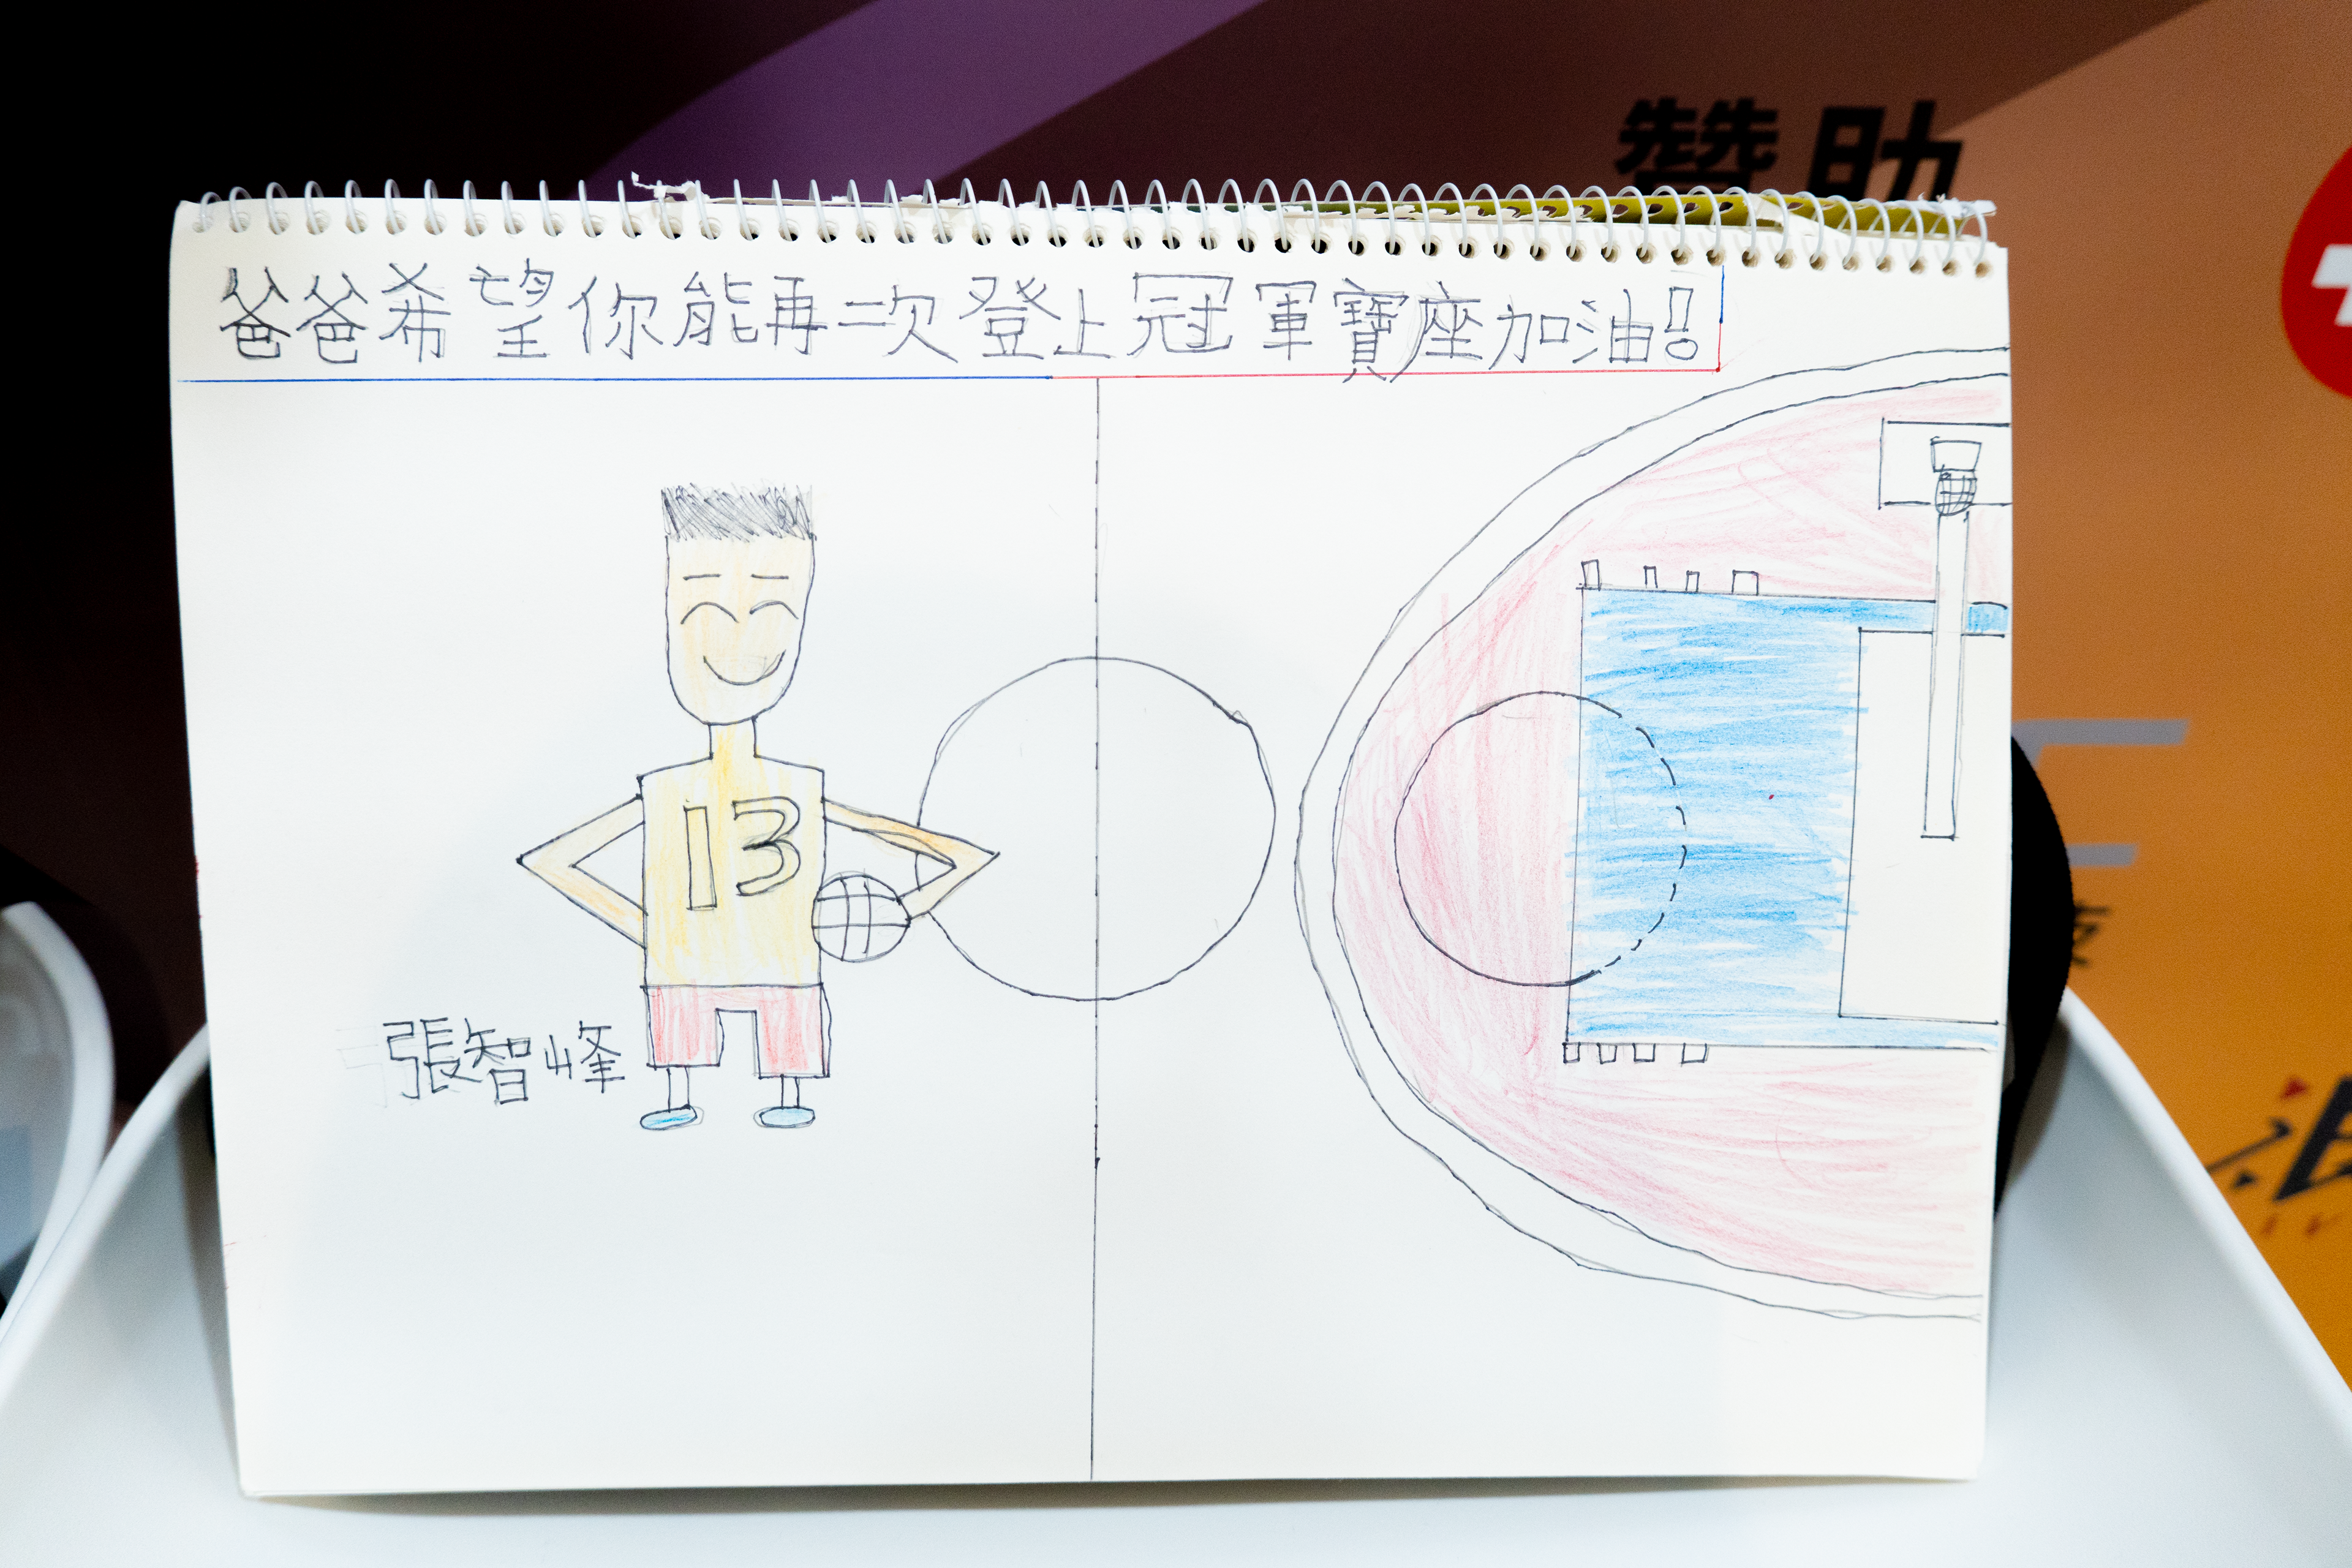 贊助
爸爸希望你能再一次登上冠軍寶座加油!
13
張智峰